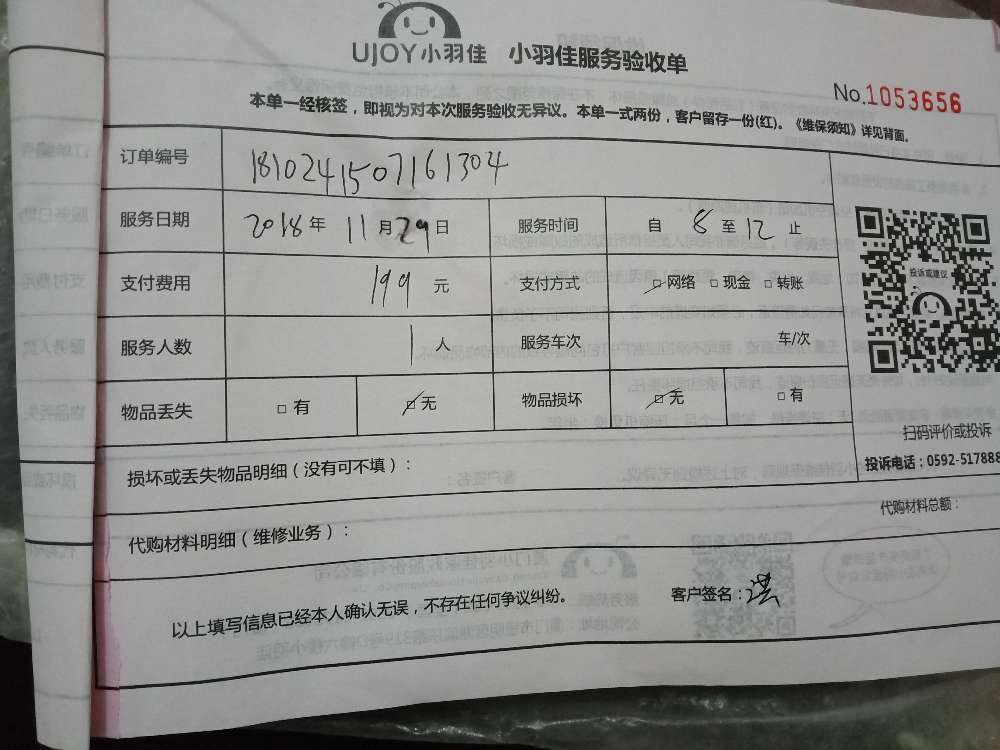 UJOY小羽佳 小羽佳服务验收单
No.1053656
本单一经核签，即视为对本次服务验收无异议。本单一式两份，客户留存一份(红)。《维保须知》详见背面。
订单编号 1810241507161304
服务日期 2018年11月29日 服务时间 自8至12止
支付费用 199元 支付方式 ☑网络 □现金 □转账
服务人数 1人 服务车次 车/次
物品丢失 □有 ☑无 物品损坏 ☑无 □有
投诉或建议
扫码评价或投诉
投诉电话：0592-517888
损坏或丢失物品明细（没有可不填）：
代购材料明细（维修业务）： 代购材料总额：
以上填写信息已经本人确认无误，不存在任何争议纠纷。 客户签名：洪